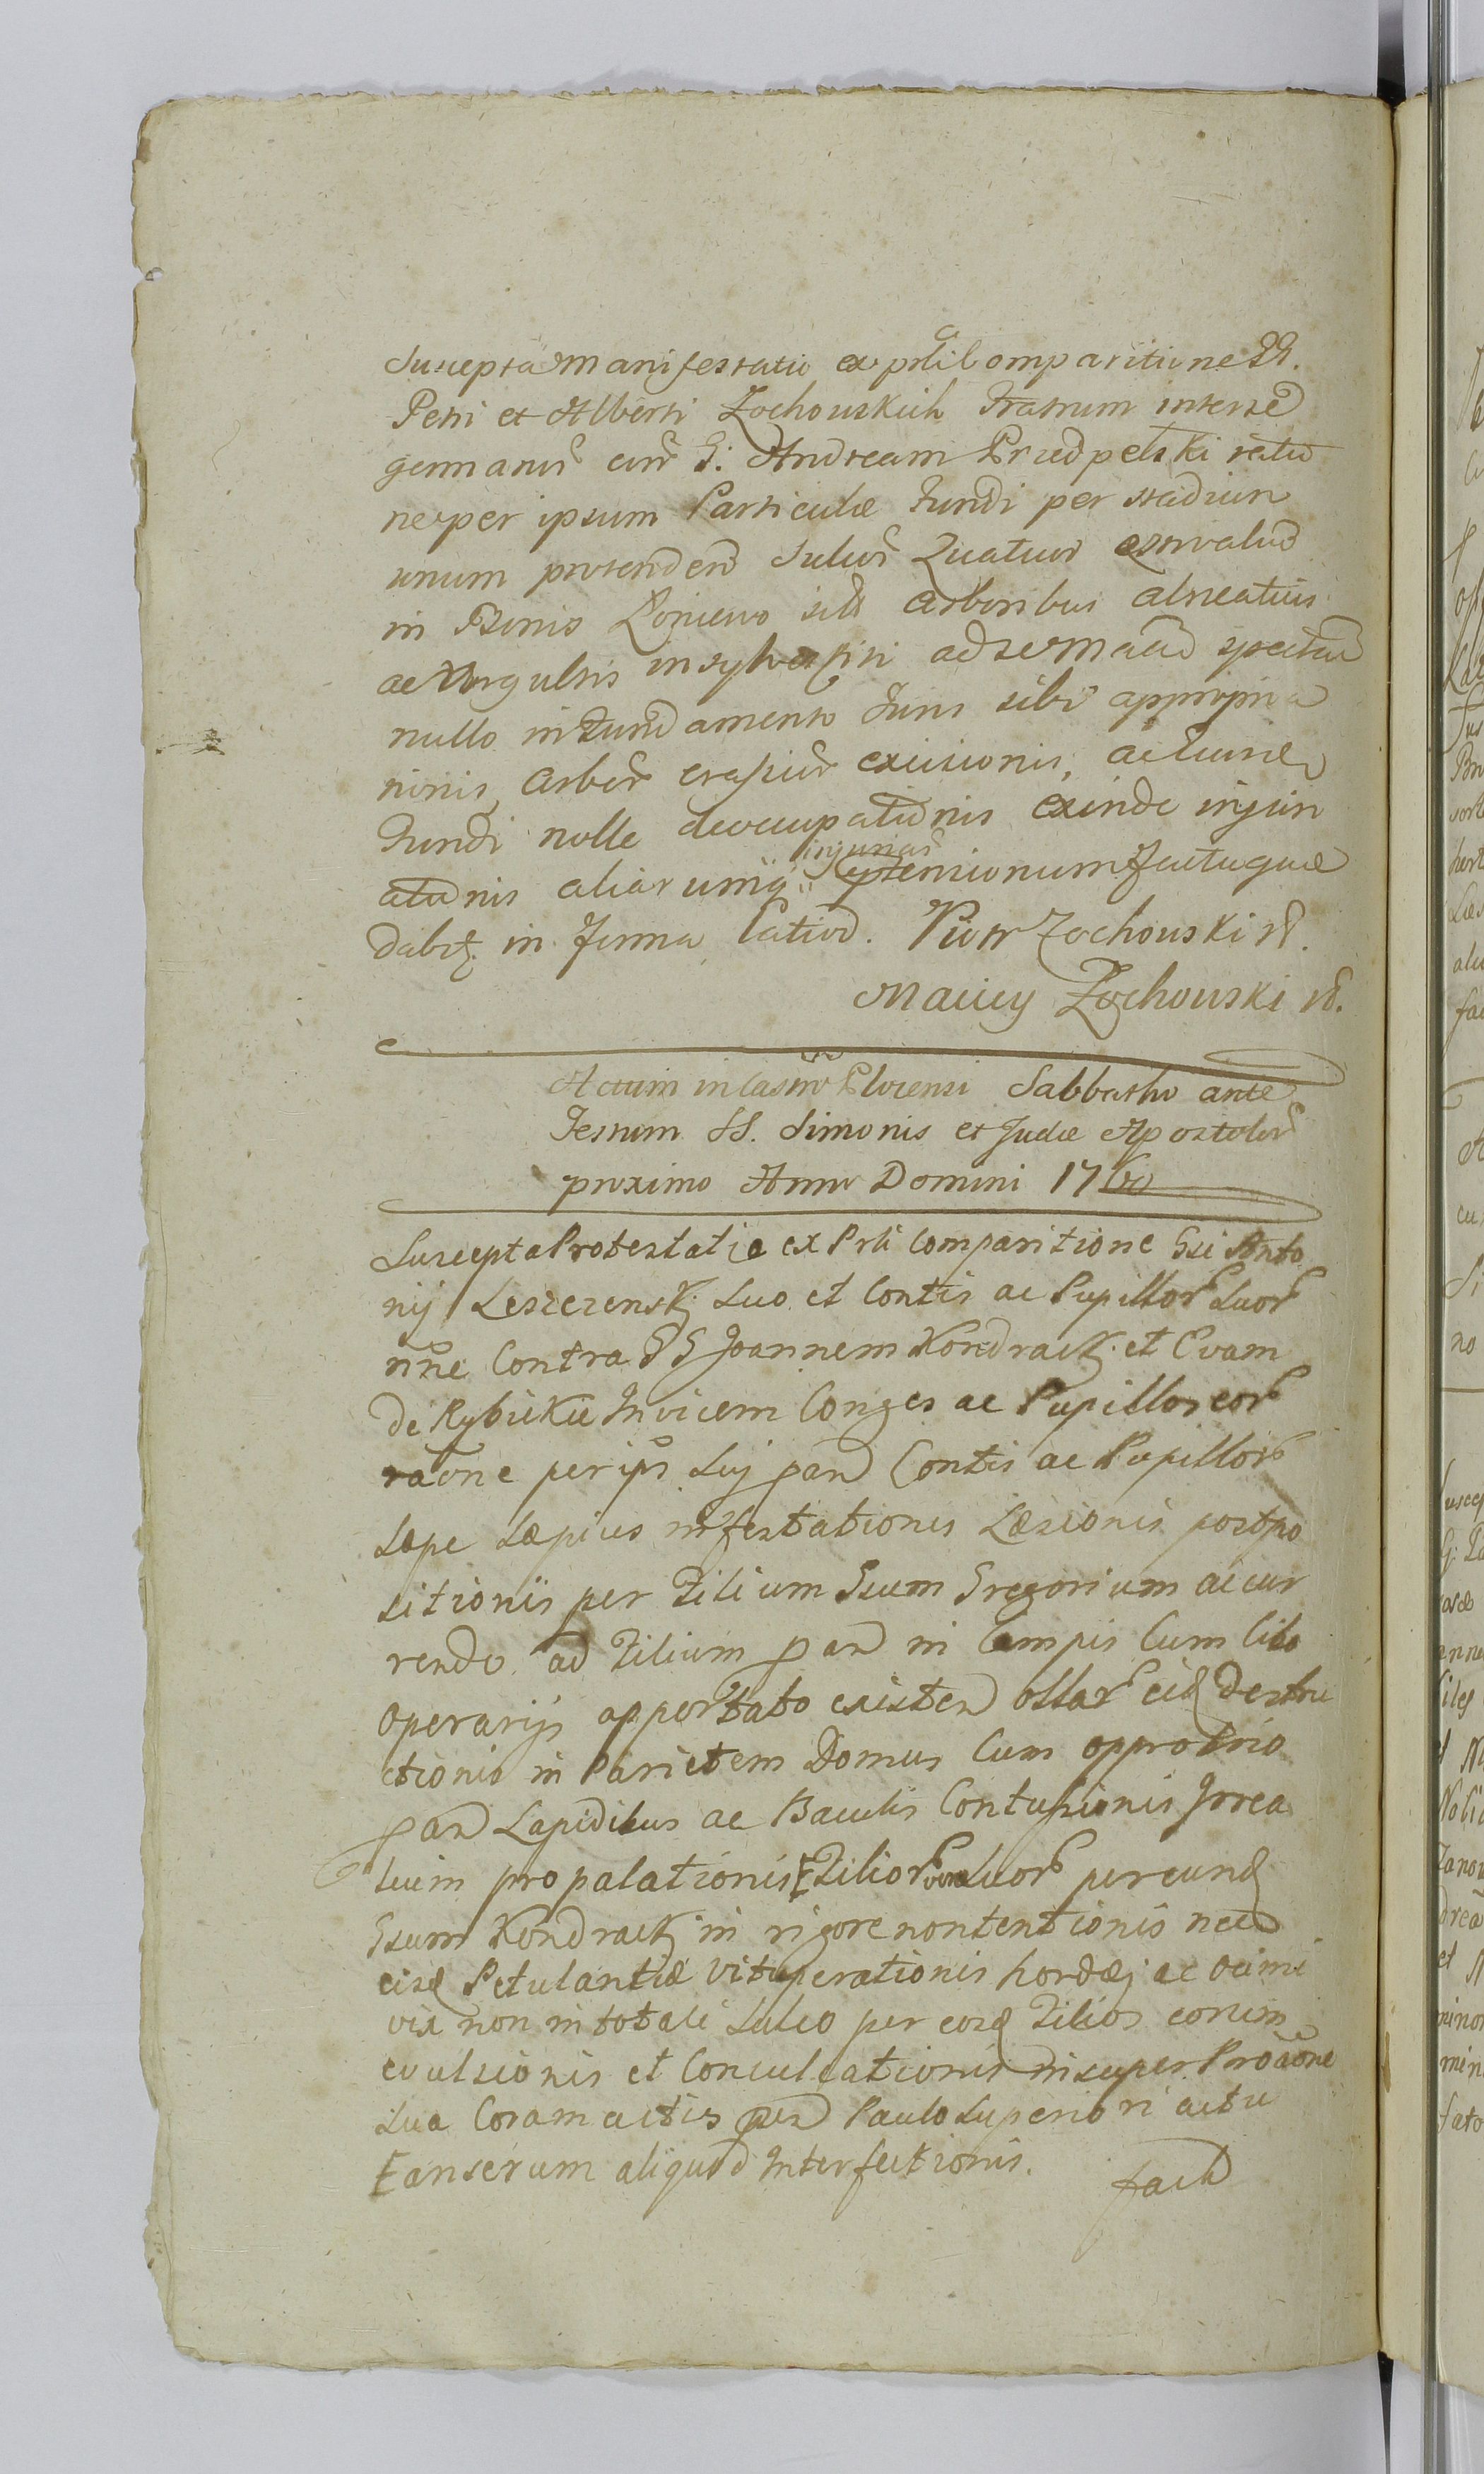 Suscepta Manifestatio ex prli Comparitione GG.
Petri et Alberti Zochowskich Fratrum inter se
germanor̃ cur̃ G: Andream Przedpełski ratio
ne per ipsum Particulæ Fundi per stadium
unum protenden̄ Sulcor̃ Quatuor
in Bonis Łoniewo arboribus alneatiis
ac Virgultis adsemaa͠ spectan̄
nullo in Fundamento Juris sibi appropria
nonis, arbor̃ crassior̃ excisionis, ac
Fundi nolle deoccupationis exinde injuri
ationis aliarumq̃ injuriar̃ ptensionum factuque
dabit. in Forma Latior̃. Piotr Zochowski
Maciey Zochowski
Actum in Castro Plocensi Sabbatho ante
Festum SS. Simonis et Judæ Apostolor̃
proximo Anno Domini 1760
Suscepta Protestatio ex Prli Comparitione Gsi Anto
nij Leszczensk. Suo et Contis ac Pupillor̃ Suor̃
nñe Contra GG Joannem Kondrack. et Evam
de Rybickie Invicem Conges ac Pupillos eor̃
raõne per ips̃ Sui Contis ac Pupillor̃
Sæpe Sæpius infestationis Læsionis postpo
sitionis per Filium Gsum Gregorium accur
rendo ad Filium in Campis Cum Cibo
operarijs apportato existen̄ ollar̃ eid. destru
ctionis in Parietem Domus Cum opprobrio
Lapidibus ac Baculis Contusionis Irrea
tuim propalationis Filior̃ vero Suor̃ per eund.
Gsum Kondrack. in rigore non tentionis nec
eisd. Petulantiæ Vituperationis hordæi ac ocimi
vix non in totali Sulco per eosd. Filios eorum
evulsionis et Conculcationis insuper Proaõne
Sua Coram actis Paulo Superiori actu
Eanserum aliquod Interfectionis.